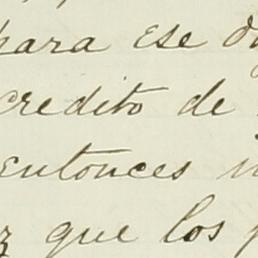 para ese
credito de
entonces
que los